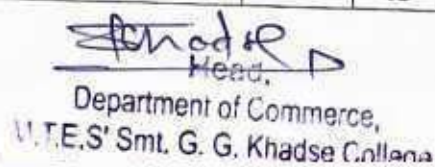 Head,
Department of Commerce,
M.T.E.S' Smt. G. G. Khadse College